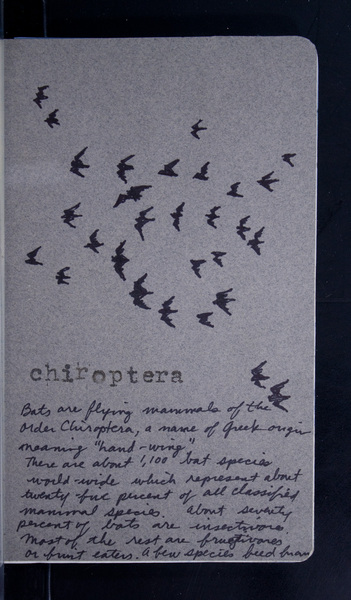 chiroptera
Bats are flying mammals of the
order Chiroptera, a name of Greek origin
meaning "hand-wing"
There are about 1,100 bat species
world-wide which represent about
twenty five percent of all classified
mammal species. About seventy
percent of bats are insectivores.
Most of the rest are frugivores
or fruit eaters. A few species feed from